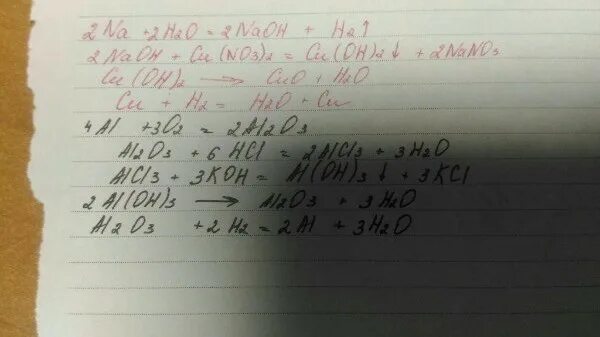 2Na + 2H2O = 2NaOH + H2↑
2NaOH + Cu(NO3)2 = Cu(OH)2↓ + 2NaNO3
Cu(OH)2 → CuO + H2O
Cu + H2 = H2O + Cu
4Al + 3O2 = 2Al2O3
Al2O3 + 6HCl = 2AlCl3 + 3H2O
AlCl3 + 3KOH = Al(OH)3↓ + 3KCl
2Al(OH)3 → Al2O3 + 3H2O
Al2O3 + 2H2 = 2Al + 3H2O